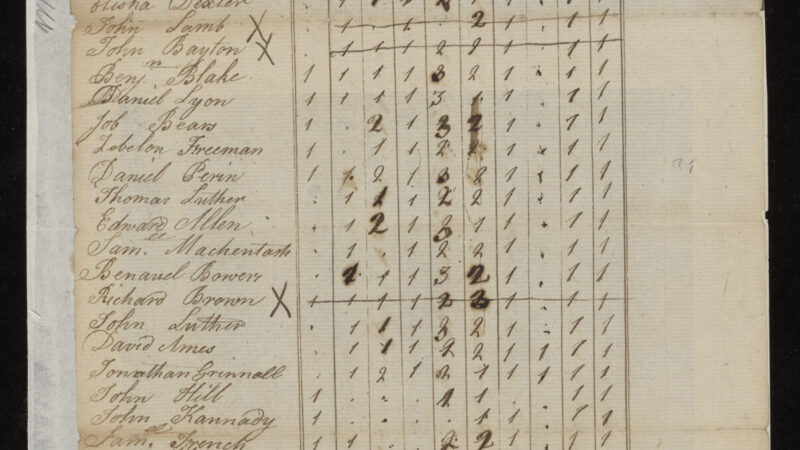 Elisha Dexter
John Lamb X · 1 · 1 · 2 1 1
John Bayton X 1 1 1 2 2 1 · 1 1
Benjn Blake 1 1 1 1 3 2 1 · 1 1
Daniel Lyon 1 1 1 1 3 1 1 · 1 1
Job Bears 1 · 2 1 3 2 1 · 1 1
Zebelon Freeman 1 · 1 1 2 2 1 · 1 1
Daniel Perin 1 1 2 1 3 2 1 · 1 1
Thomas Luther · 1 1 1 2 2 1 · 1 1
Edward Allen · · 2 1 3 1 1 · 1 1
Saml Mackentosh · 1 · 1 2 2 1 · 1 1
Benauel Bowers · 2 1 1 3 2 1 · 1 1
Richard Brown X 1 1 1 1 2 2 1 · 1 1
John Luther · 1 1 1 3 2 1 · 1 1
David Ames · 1 1 1 2 2 1 1 1 1
Jonathan Grinnall · 1 2 1 2 1 1 1 1 1
John Hill 1 · · · 2 1 1 · 1 1
John Kannady 1 · · · · 1 1 · 1 1
Saml French 1 1 · · 2 2 1 · 1 1